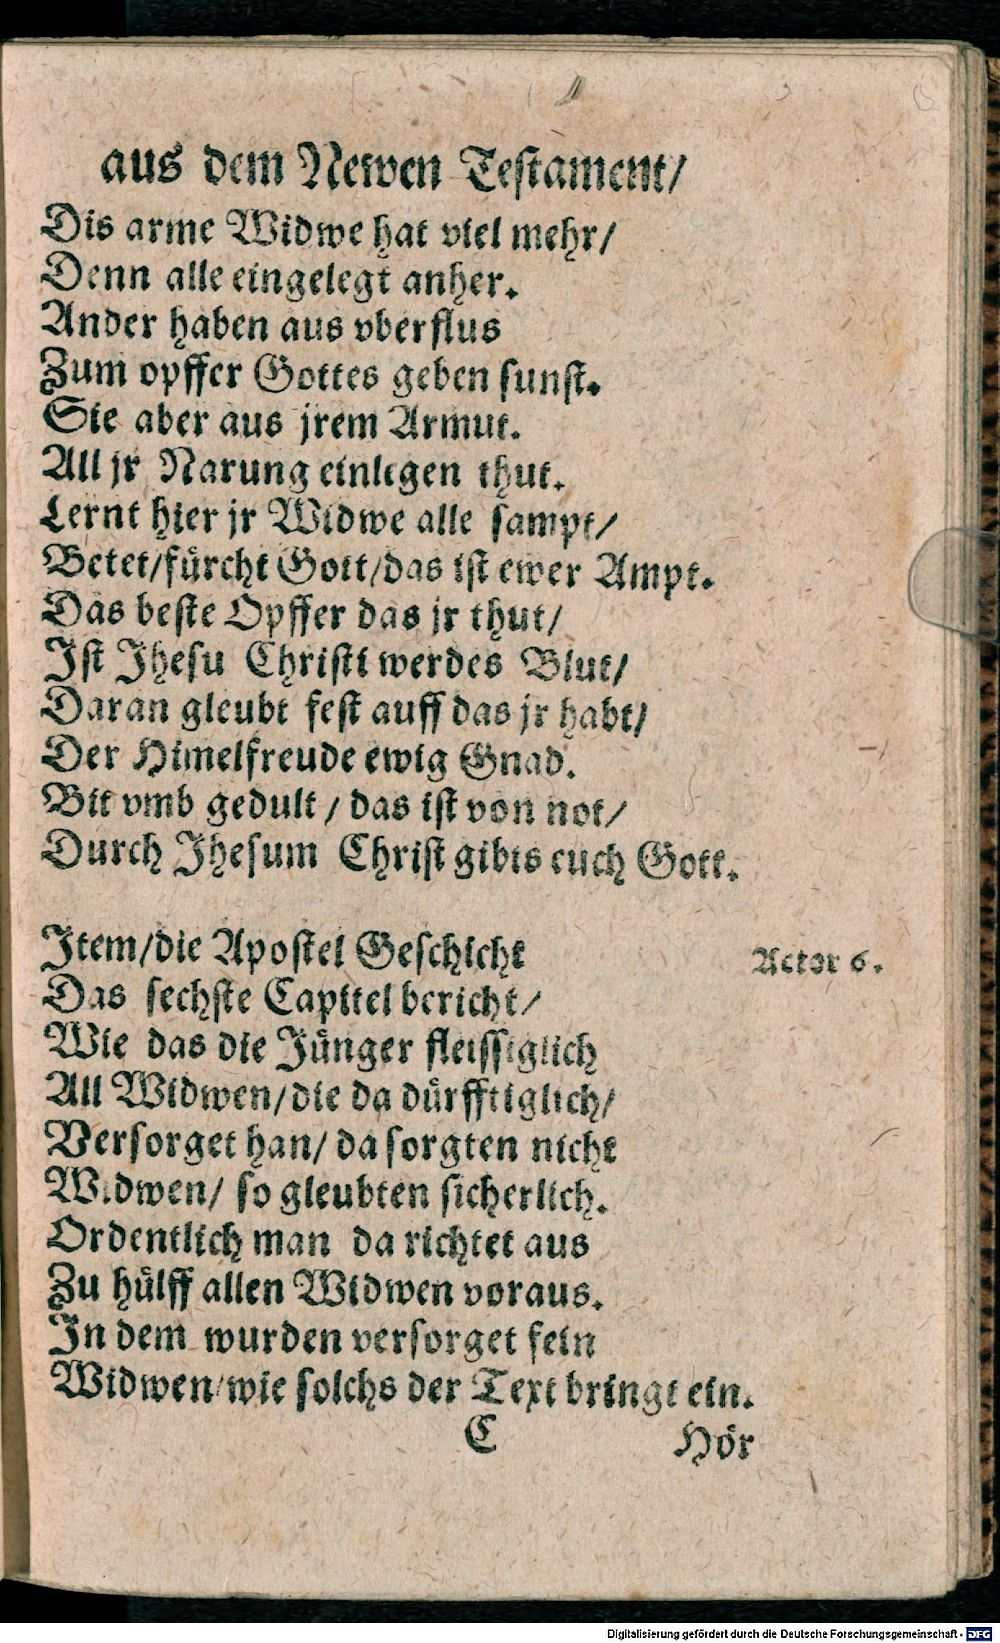 aus dem Newen Testament/
Dis arme Widwe hat viel mehr/
Denn alle eingelegt anher.
Ander haben aus vberflus
Zum opffer Gottes geben sunst.
Sie aber aus jrem Armut.
All jr Narung einlegen thut.
Lernt hier jr Widwe alle sampt/
Betet/fürcht Gott/das ist ewer Ampt.
Das beste Opffer das jr thut/
Ist Jhesu Christi werdes Blut/
Daran gleubt fest auff das jr habt/
Der Himelfreude ewig Gnad.
Bit vmb gedult / das ist von not/
Durch Jhesum Christ gibts euch Gott.
Item/die Apostel Geschicht
Actor 6.
Das sechste Capittel bericht/
Wie das die Jünger fleissiglich
All Widwen/die da dürfftiglich/
Versorget han/ da sorgten nicht
Widwen/ so gleubten sicherlich.
Ordentlich man da richtet aus
Zu hülff allen Widwen voraus.
In dem wurden versorget fein
Widwen/wie solchs der Text bringt ein.
C Hör
Digitalisierung gefördert durch die Deutsche Forschungsgemeinschaft - DFG